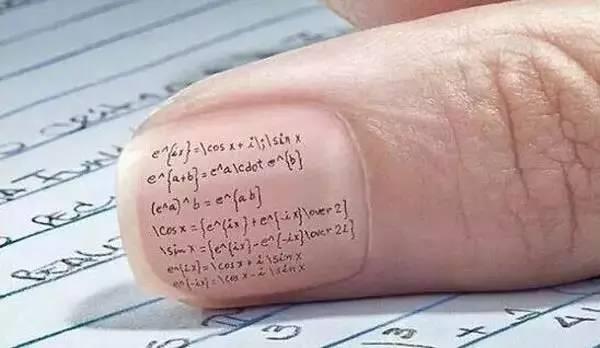 e^{ix}=\cos x + i\;\sin x
e^{a+b}=e^a\cdot e^{b}
(e^a)^b = e^{ab}
\cos x = {e^{ix}+e^{-ix}\over 2}
\sin x = {e^{ix}-e^{-ix}\over 2i}
e^{ix}=\cos x + i\sin x
e^{-ix}=\cos x - i\sin x